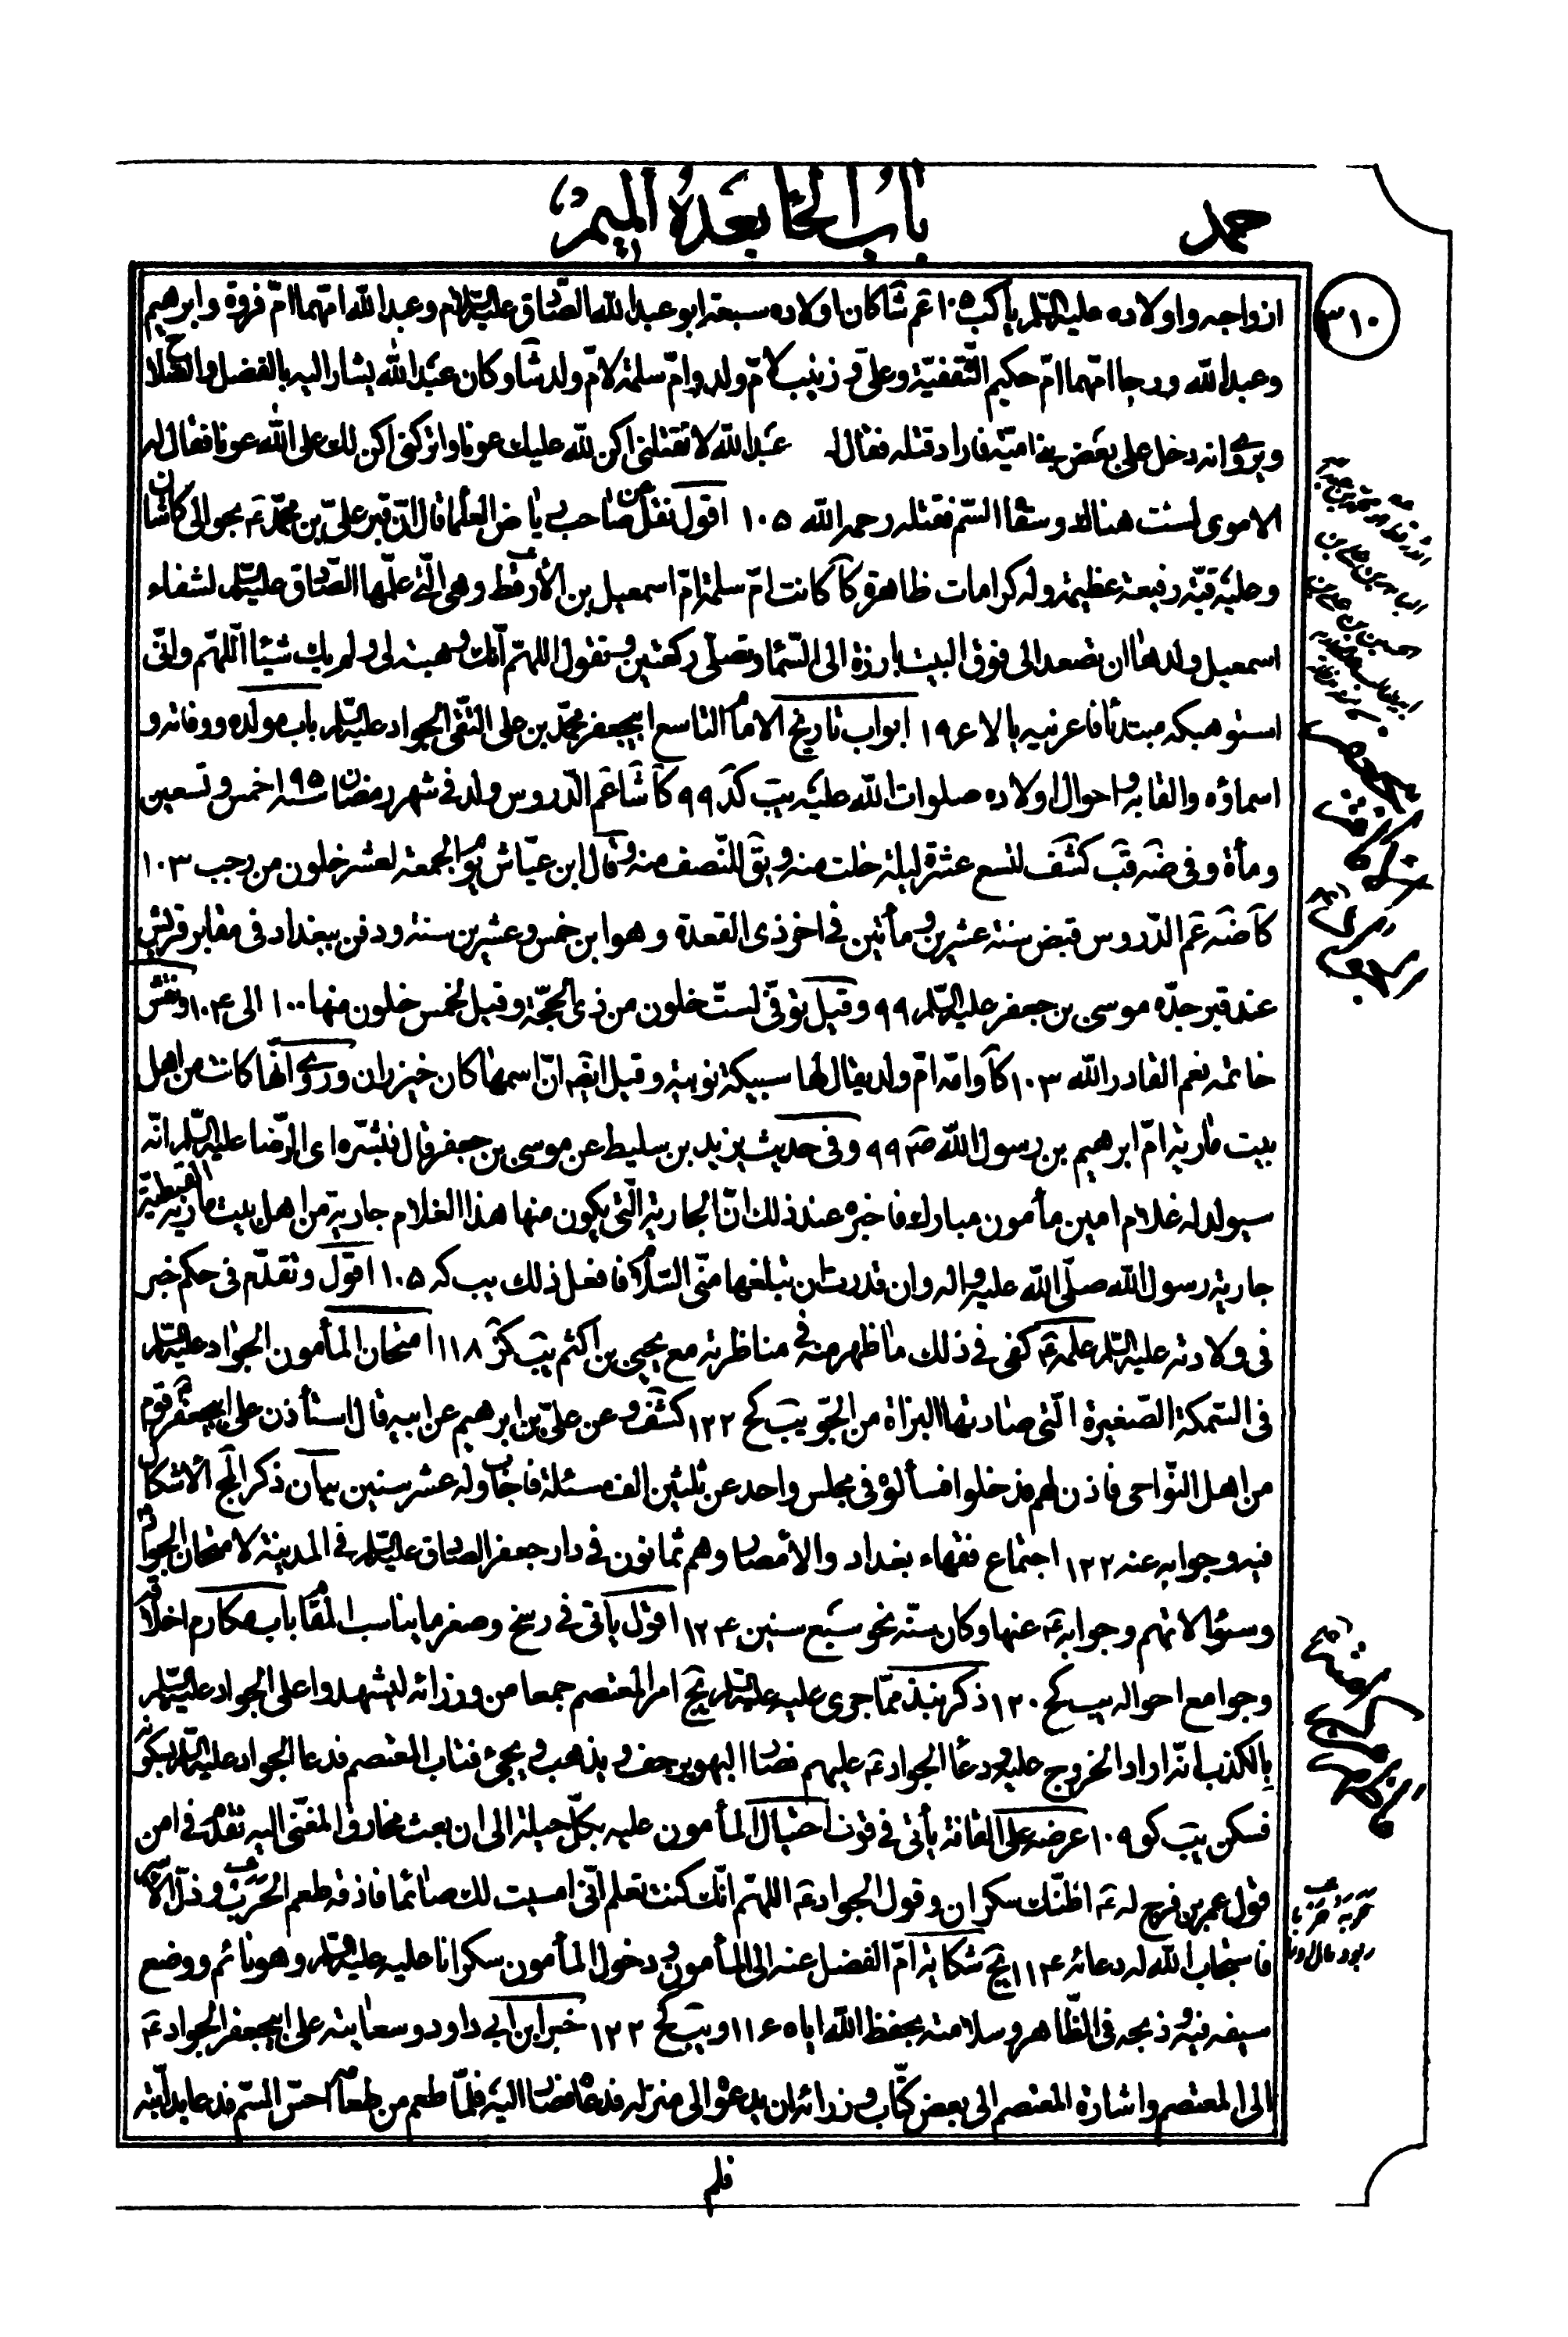 حمد
باب الحاء بعده الميم
٣١٠
ازواجه واولاده عليه السلم يا كب ١٠٥ عم شا كان اولاده سبعة ابو عبد الله الصادق عليه السلام وعبد الله امهما ام فروة وابرهيم
وعبد الله درجا امهما ام حكيم الثقفية وعلى و زينب لام ولد وام سلمة لام ولد شا وكان عبد الله يشار اليه بالفضل والصلاح
ويروى انه دخل على بعض بنى امية فاراد قتله فقال له عبد الله لا تقتلنى اكن لله عليك عونا واتركنى اكن لك على الله عونا فقال له
الاموى لست هناك وسقاه السم فقتله رحمه الله ١٠٥ اقول نقل عن صاحب رياض العلما قال ان قبر على بن محمد ع بحوالى كاشان
وعليه قبة رفيعة عظيمة وله كرامات ظاهرة كا كانت ام سلمة ام اسمعيل بن الأرقط وهى التى علمها الصادق عليه السلم لشفاء
اسمعيل ولدها ان تصعد الى فوق البيت بارزة الى السماء وتصلى ركعتين وتقول اللهم انك وهبته لى ولم يك شيئا اللهم وانى
استوهبكه مبتدئا فاعرنيه يا لا ١٩٦ ابواب تاريخ الامام التاسع ابيجعفر محمد بن على التقى الجواد عليه السلم باب مولده ووفاته و
اسماؤه والقابه واحوال اولاده صلوات الله عليه يب كد ٩٩ كا شا عم الدروس ولد فى شهر رمضان سنه ١٩٥ خمس وتسعين
ومأة وفى ضه قب كشف لتسع عشرة ليلة خلت منه ويق للنصف منه وقال ابن عياش يوم الجمعة لعشر خلون من رجب ١٠٣
كا ضه عم الدروس قبض سنة عشرين ومأتين فى اخر ذى القعدة وهو ابن خمس وعشرين سنة ودفن ببغداد فى مقابر قريش
عند قبر جده موسى بن جعفر عليه السلم ٩٩ وقيل توفى لست خلون من ذى الحجة وقيل لخمس خلون منها ١٠٠ الى ١٠٤ ونقش
خاتمه نعم القادر الله ١٠٣ كا وامه ام ولد يقال لها سبيكة نوبية وقيل ايضه ان اسمها كان خيزران وروى انها كانت من اهل
بيت مارية ام ابرهيم بن رسول الله ص ٩٩ وفى حديث يزيد بن سليط عن موسى بن جعفر قال فبشره اى الرضا عليه السلم انه
سيولد له غلام امين مأمون مبارك فاخبره عند ذلك ان الجارية التى يكون منها هذا الغلام جارية من اهل بيت مارية القبطية
جارية رسول الله صلى الله عليه واله وان قدرت ان تبلغها منى السلام فافعل ذلك يب كه ١٠٥ اقول وتقدم فى حكم خبر
فى ولادته عليه السلم علمه ع كفى فى ذلك ما ظهر منه فى مناظرته مع يحيى بن اكثم يب كز ١١٨ امتحان المأمون الجواد عليه السلم
فى السمكة الصغيرة التى صادتها البزاة من الجو يب كح ١٢٢ كشف و عن على بن ابرهيم عن ابيه قال استأذن على ابيجعفر ع قوم
من اهل النواحى فاذن لهم فدخلوا فسألوه فى مجلس واحد عن ثلثين الف مسئلة فاجاب وله عشر سنين بيان ذكر المج الاشكال
فيه وجوابه عنه ١٢٢ اجتماع فقهاء بغداد والامصار وهم ثمانون فى دار جعفر الصادق عليه السلم فى المدينة لامتحان الجواد
وسئوالاتهم وجوابه ع عنها وكان سنه نحو سبع سنين ١٢٤ اقول ياتى فى رسخ وصغر ما يناسب المقام باب مكارم اخلاقه
وجوامع احواله يب كح ١٢٠ ذكر نبذ مما جرى عليه عليه السلم يج امر المعتصم جمعا من وزرائه ليشهدوا على الجواد عليه السلم
بالكذب انه اراد الخروج عليه ودعا الجواد ع عليهم فصار البهو يرجف و يذهب و يجئ فتاب المعتصم فدعا الجواد عليه السلم بسكونه
فسكن يب كو ١٠٩ عرضه على القافة يأتى فى قوف احتيال المأمون عليه بكل حيلة الى ان بعث مخارق المغنى اليه تقدم فى امن
قول عمر بن فرج له ع اظنك سكران وقول الجواد ع اللهم ان كنت تعلم انى امسيت لك صائما فاذقه طعم الحرب وذل الاسر
فاستجاب الله له دعائه ١١٤ يج شكاية ام الفضل عنه الى المأمون و دخول المأمون سكرانا عليه عليه السلم وهو نائم ووضع
سيفه فيه وذبحه فى الظاهر وسلامته بحفظ الله اياه ١١٦ ويب كح ١٢٢ خبر ابن ابى داود وسعايته على ابيجعفر الجواد ع
الى المعتصم واشارة المعتصم الى بعض كتاب وزرائه ان يدعو الى منزله فدعاه فصار اليه فلما طعم من طعام احس السم فدعا بدابته
فلم